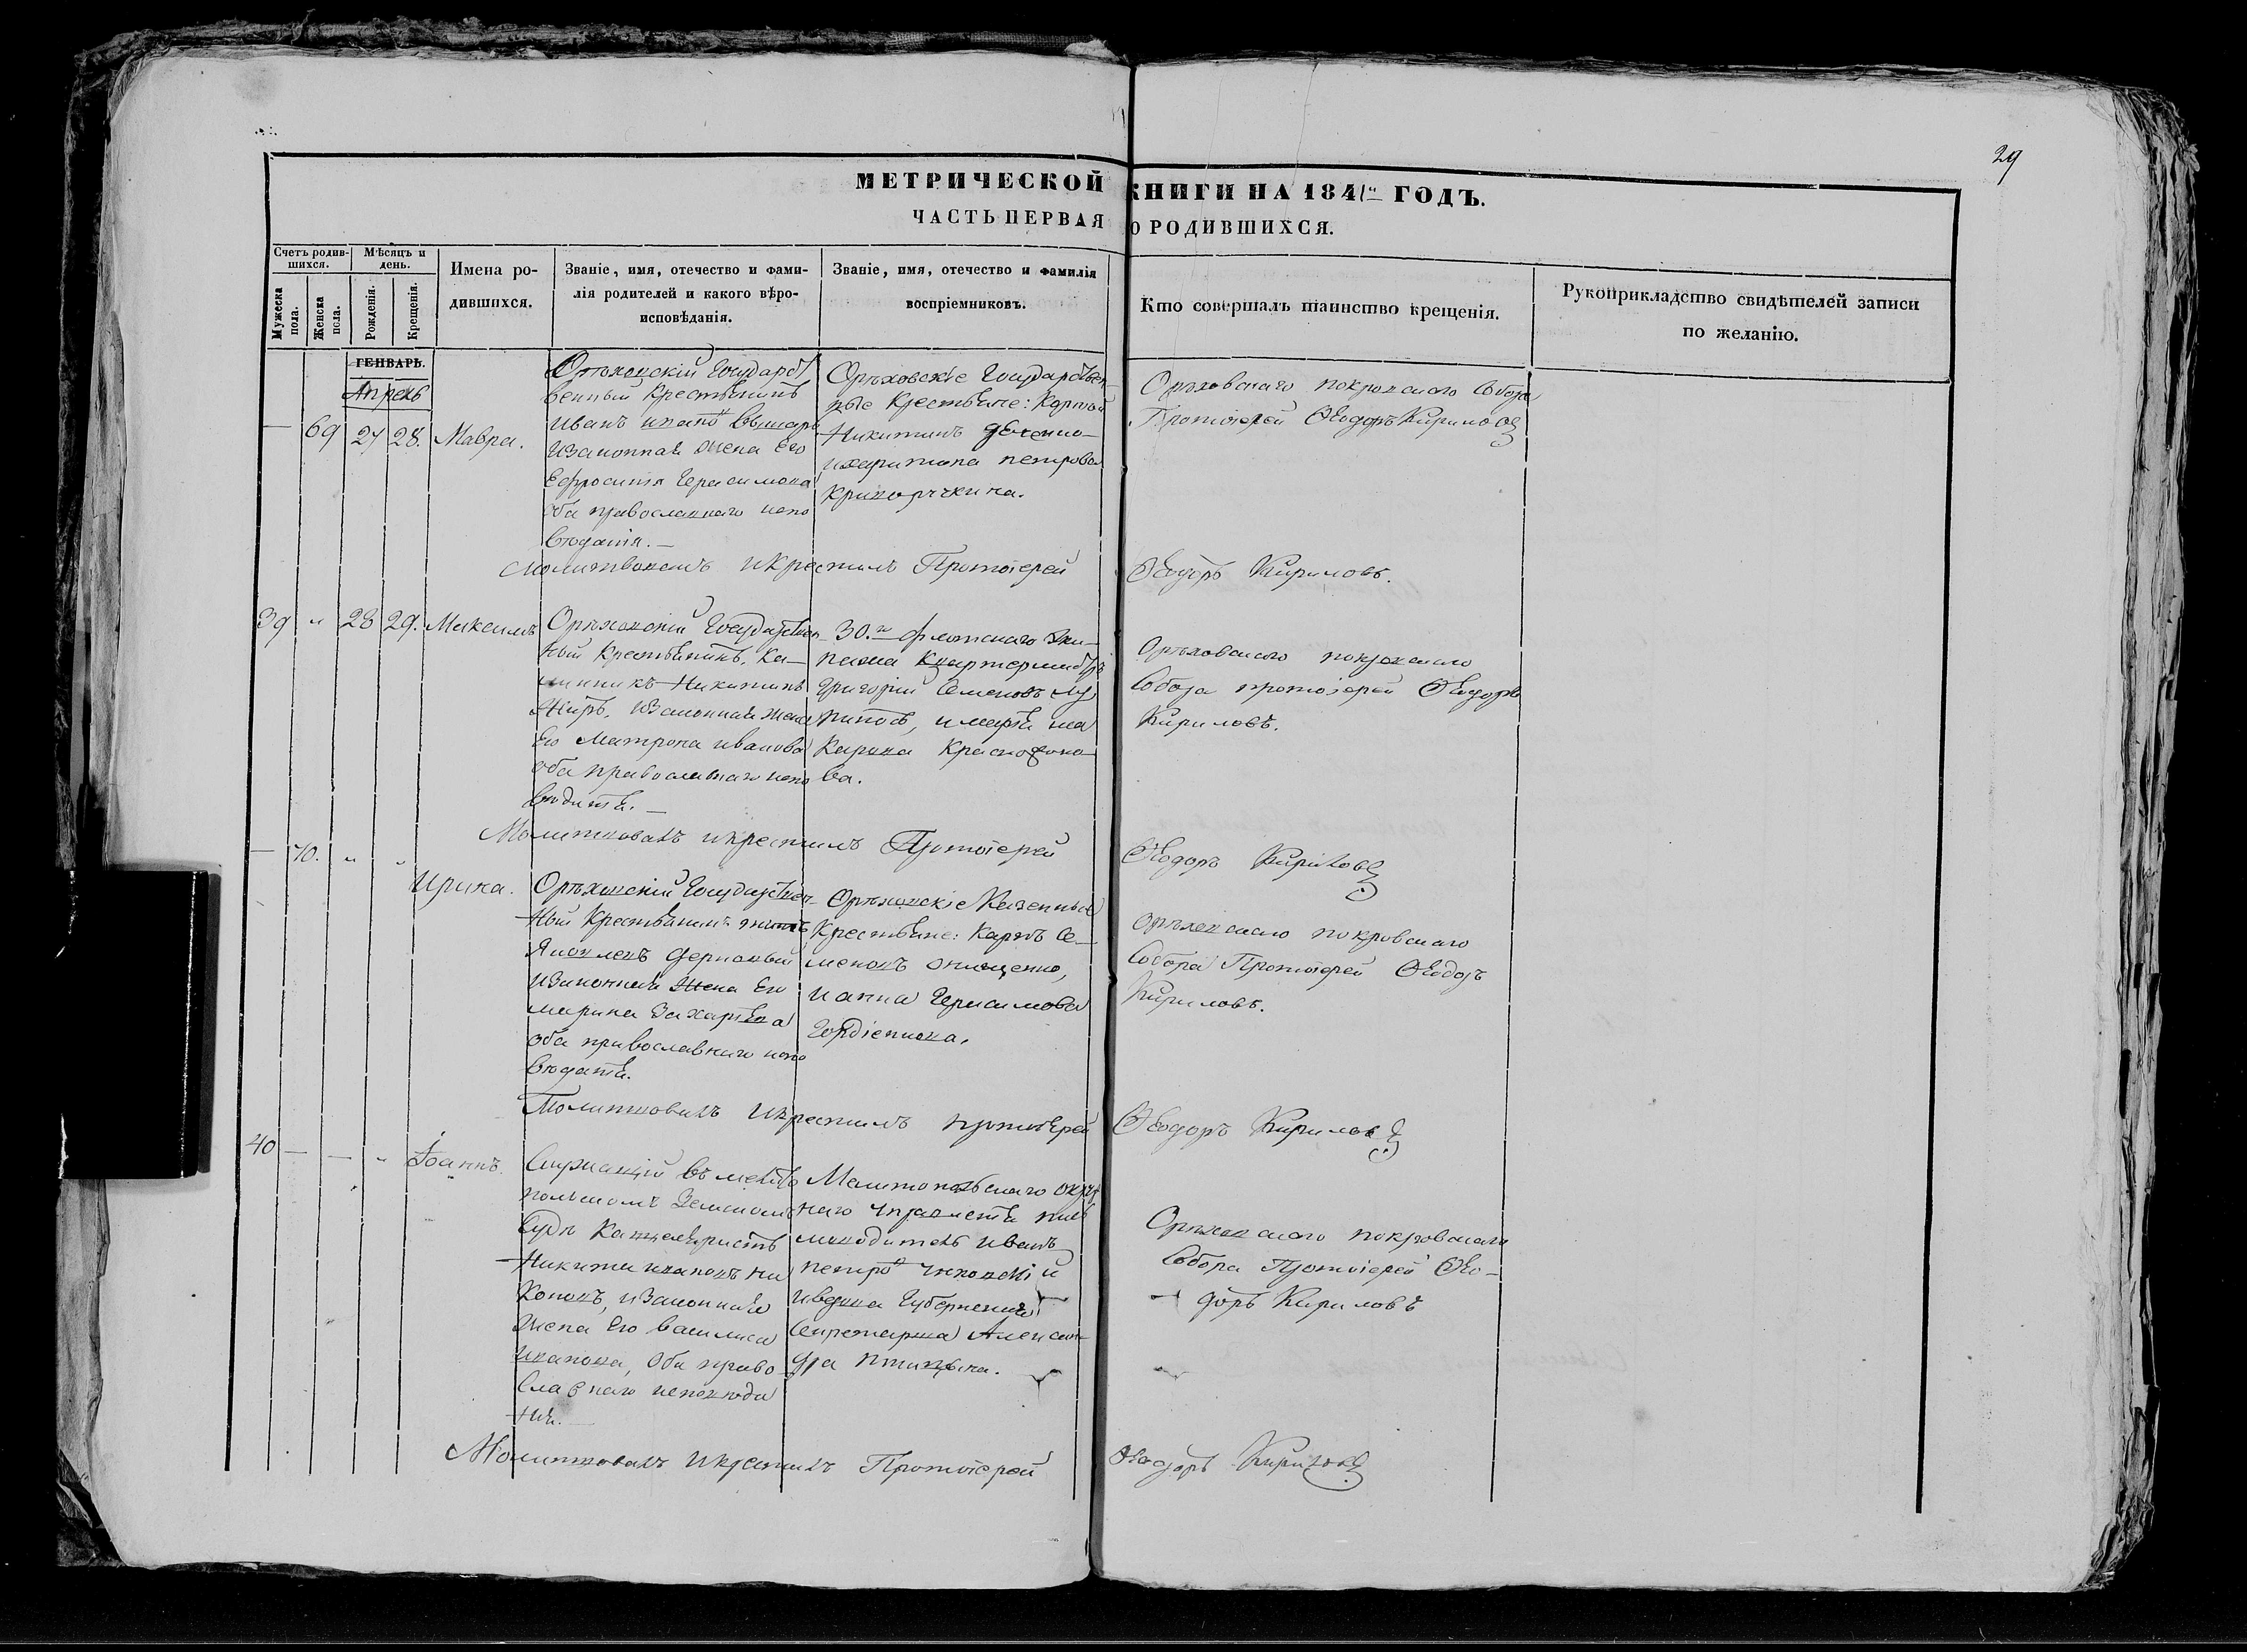 29
МЕТРИЧЕСКОЙ КНИГИ НА 1841й ГОДЪ.
ЧАСТЬ ПЕРВАЯ О РОДИВШИХСЯ.
Счетъ родив-
шихся.
Мужеска
пола.
Женска
пола.
Мѣсяцъ и
день.
Рожденія.
Крещенія.
Имена ро-
дившихся.
Званіе, имя, отечество и фами-
лія родителей и какого вѣро-
исповѣданія.
Званіе, имя, отечество и фамилія
воспріемниковъ.
Кто совершалъ таинство крещенія.
Рукоприкладство свидѣтелей записи
по желанію.
ГЕНВАРЬ.
Апрель
— 69 27 28. Мавра.
Орѣховскій Государст
венный Крестьянинъ
Иванъ
изаконная жена его
Ефросинія Герасимова
оба православнаго испо
вѣданія.—
Орѣховскіе Государствен-
ные Крестьяне:
Никитинъ
ихаритина петрова
криворучкина.
Орѣховскаго покровскаго Собора
Протоіерей Ѳеодоръ Кириловъ
Молитвовалъ икрестилъ Протоіерей Ѳеодоръ Кириловъ.
39 " 28 29. Максимъ
Орѣховскій Государствен-
ный Крестьянинъ, Ка-
Никитинъ
изаконная жена
его Матрона иванова
оба православнаго испо
вѣданія.—
30.го флотскаго Эки-
пажа Квартермистръ
Григорій Семеновъ
имарѳа ма
карова Красноконо-
ва.
Орѣховскаго покровскаго
Собора протоіерей Ѳеодоръ
Кириловъ.
Молитвовалъ икрестилъ Протоіерей Ѳеодоръ Кириловъ
— 70. " " Ирина.
Орѣховскій Государствен-
ный Крестьянинъ
Яковлевъ
изаконная жена его
марина Захарьева
оба православнаго испо
вѣданія.
Орѣховскіе Казенные
Крестьяне: Карпъ Се-
меновъ онищенко,
ианна Герасимова
Гордіенкова.
Орѣховскаго покровскаго
Собора Протоіерей Ѳеодоръ
Кириловъ.
Молитвовалъ икрестилъ протоіерей Ѳеодоръ Кириловъ
40 — — " Іоаннъ.
Служащій въ мелито
польскомъ Земскомъ
Судѣ Канцеляристъ
Никита ивановъ Ни
коновъ, изаконная
жена его василиса
иванова, оба право
славнаго исповѣда
нія.—
Мелитопольскаго окруж
наго управленія пись
моводитель иванъ
петровъ
ивдова Губернская
Секретарша Алексан-
дра птицына.
Орѣховскаго покровскаго
Собора Протоіерей Ѳео-
доръ Кириловъ
Молитвовалъ икрестилъ Протоіерей Ѳеодоръ Кириловъ